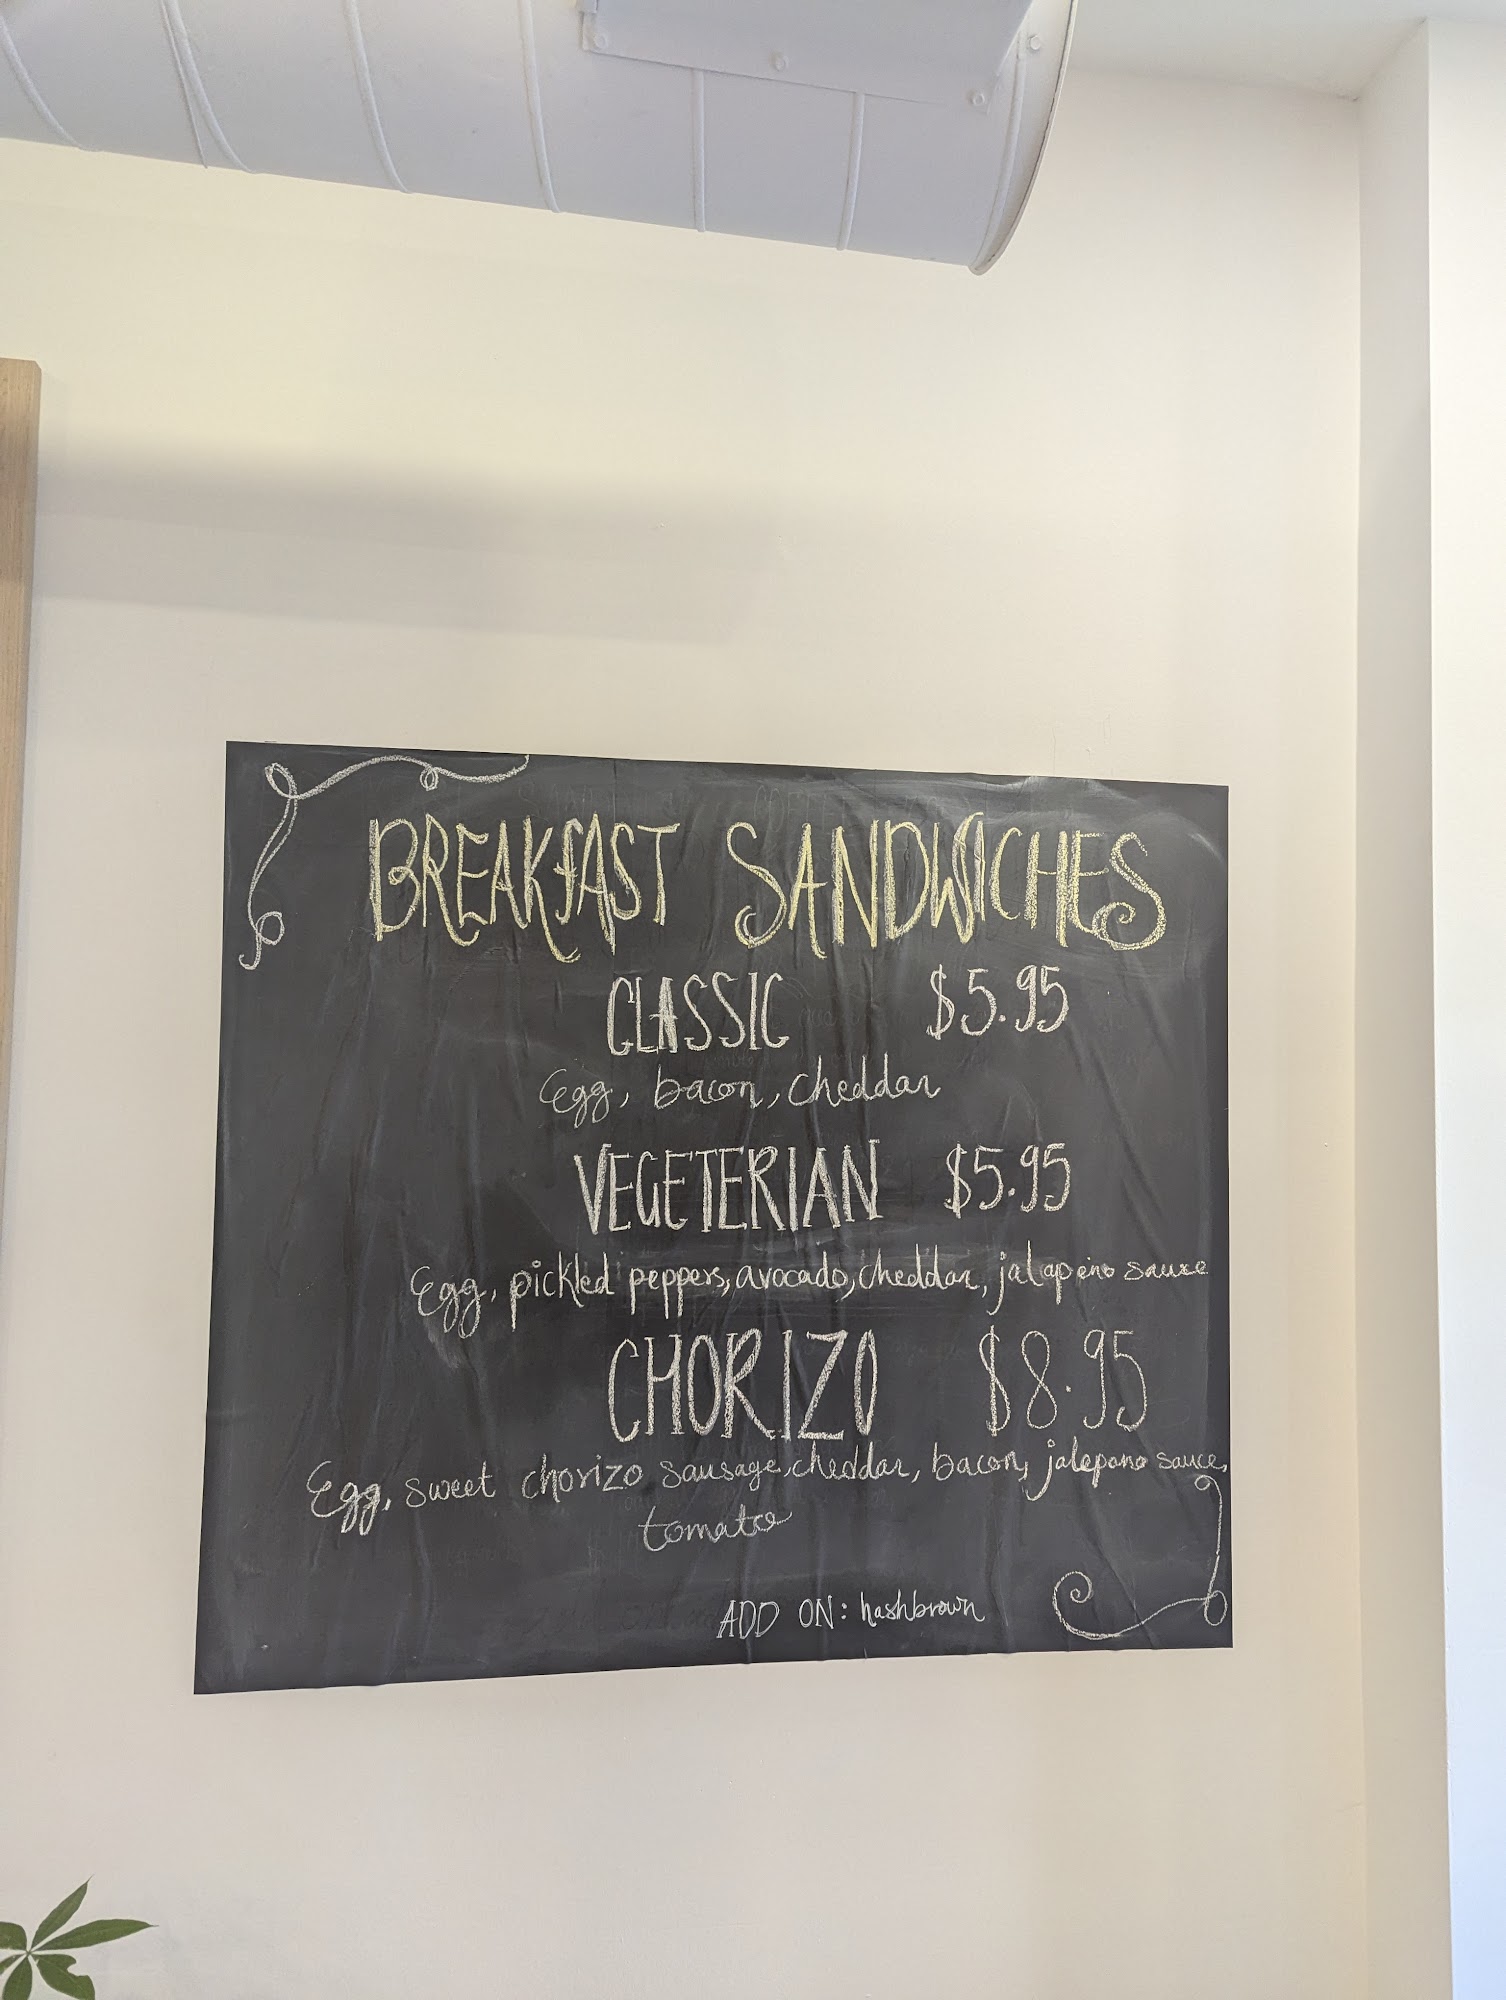 BREAKFAST SANDWICHES
CLASSIC $5.95
Egg, bacon, cheddar
VEGETERIAN $5.95
Egg, pickled peppers, avocado, cheddar, jalapeno sauce
CHORIZO $8.95
Egg, sweet chorizo sausage, cheddar, bacon, jalepano sauce,
tomato
ADD ON: hashbrown